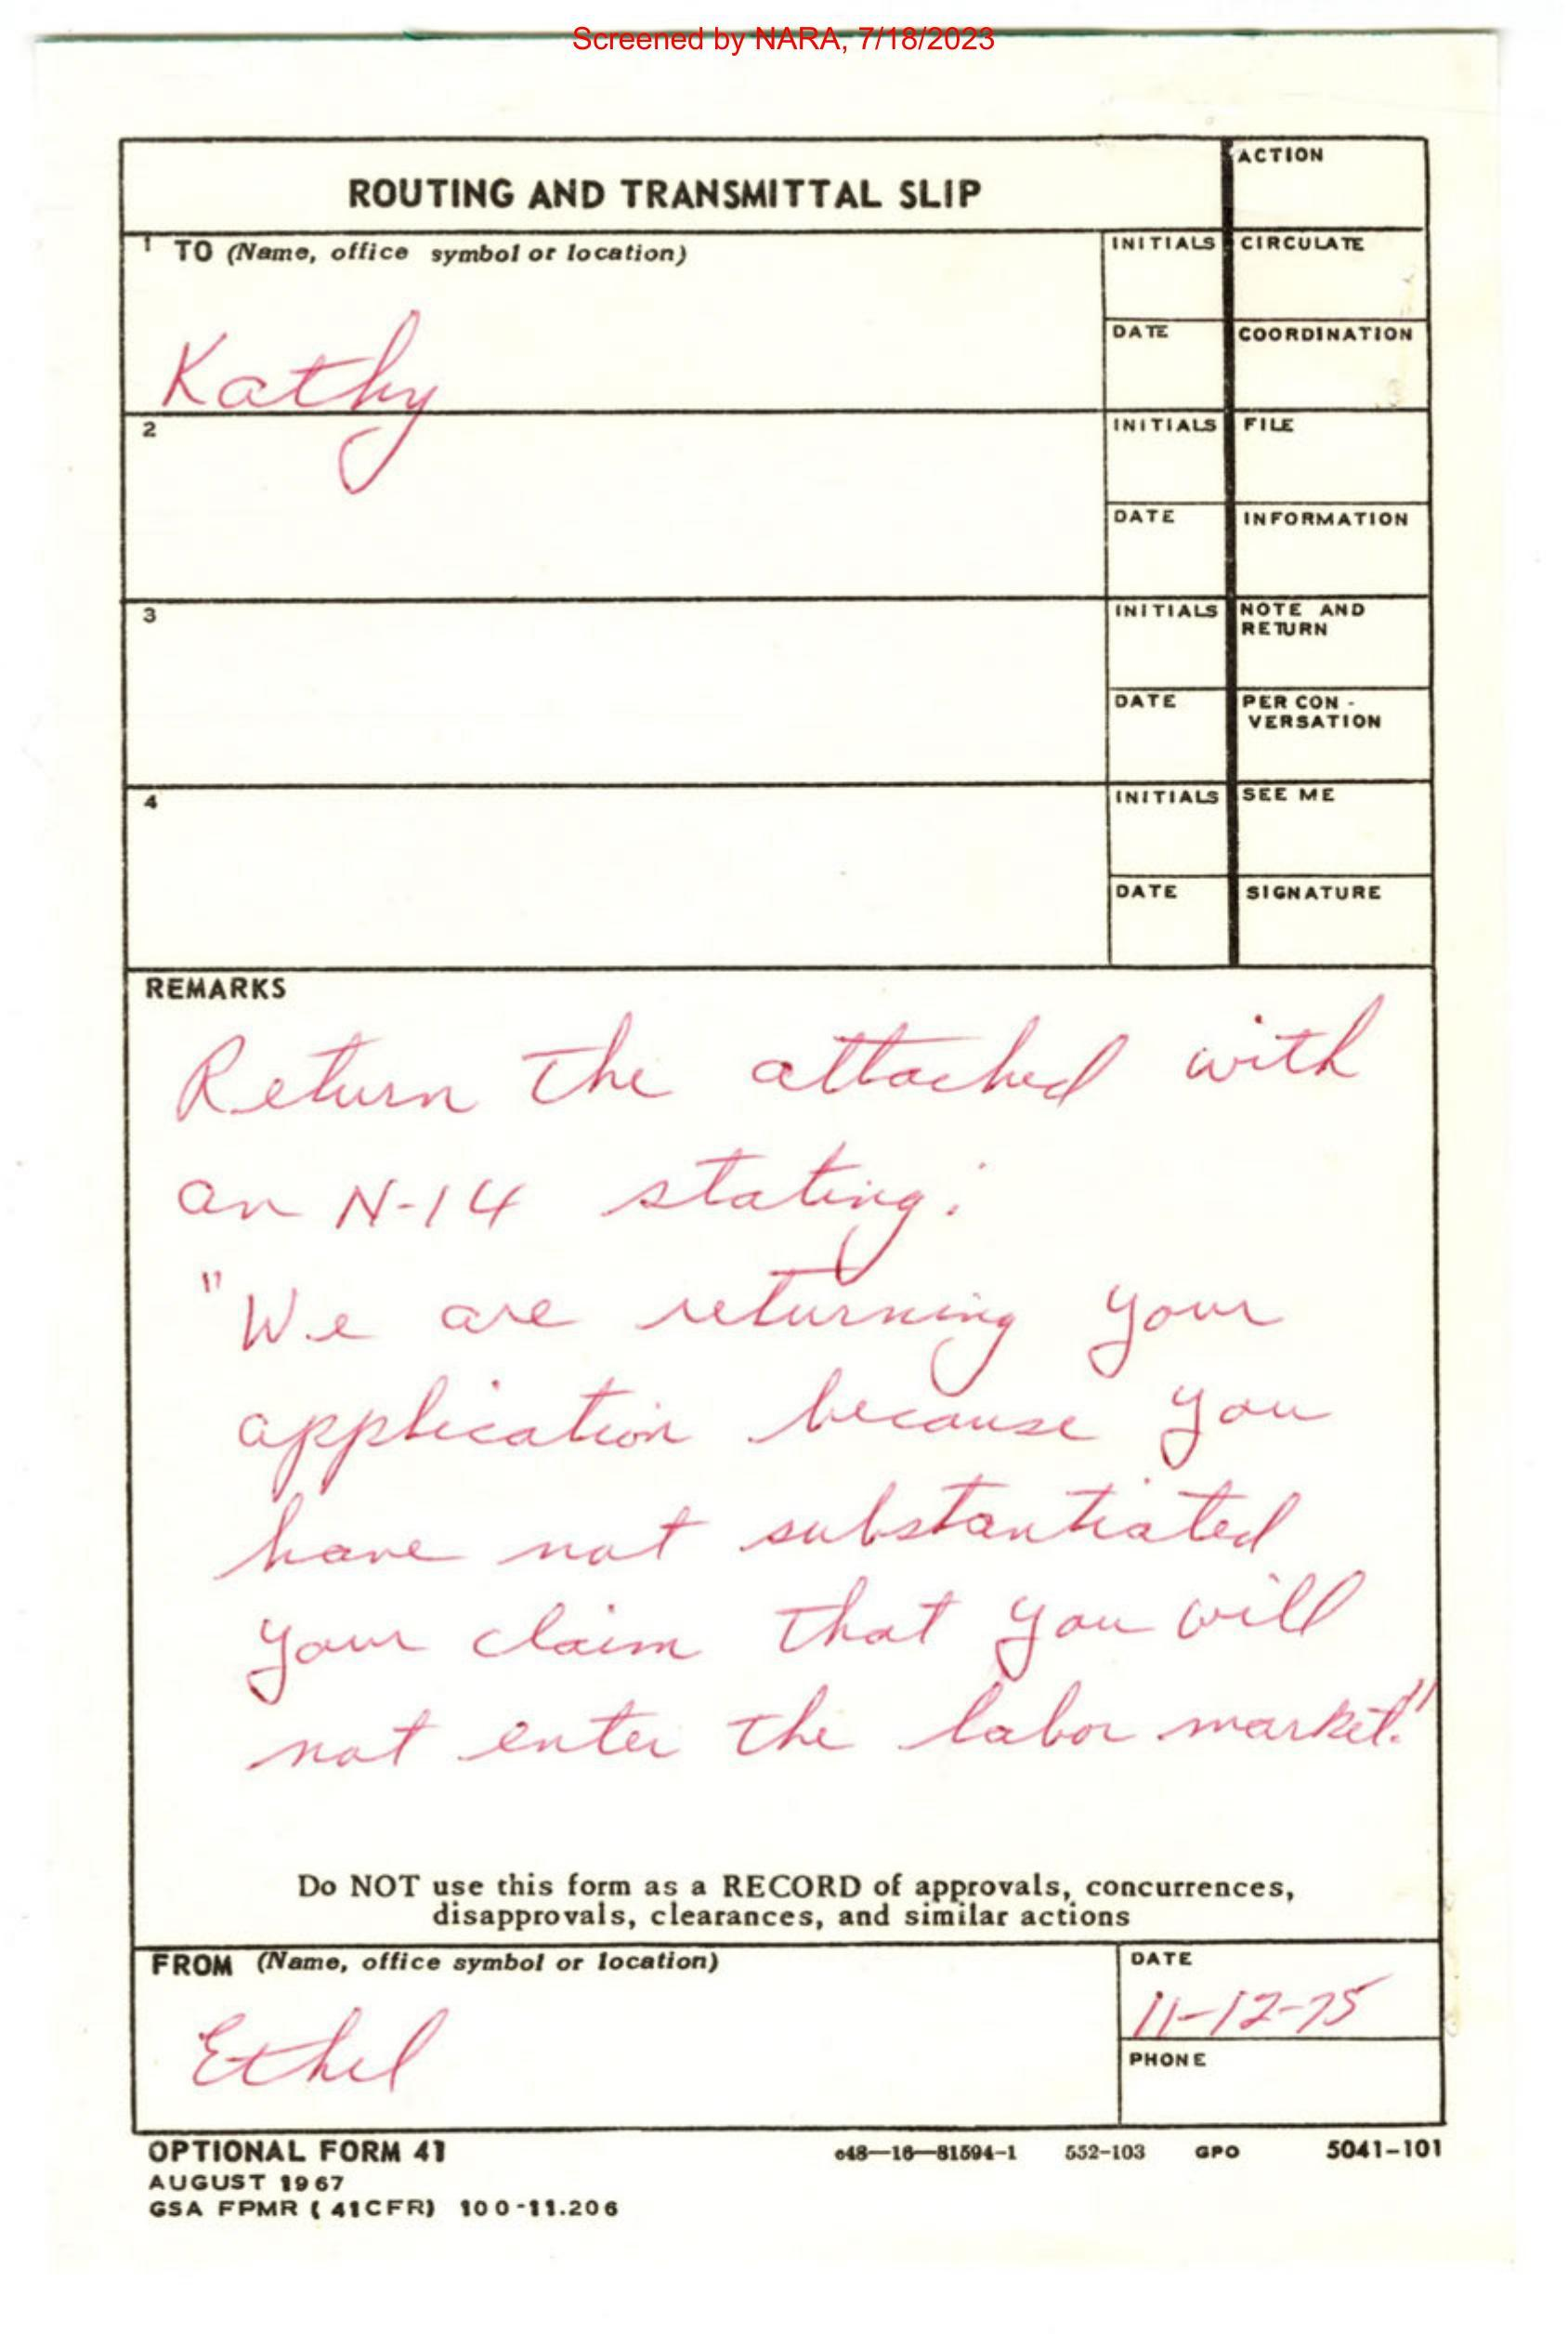 Screened by NARA, 7/18/2023
ROUTING AND TRANSMITTAL SLIP
ACTION
1 TO (Name, office symbol or location)
INITIALS
CIRCULATE
Kathy
DATE
COORDINATION
2
INITIALS
FILE
DATE
INFORMATION
3
INITIALS
NOTE AND
RETURN
DATE
PER CON -
VERSATION
4
INITIALS
SEE ME
DATE
SIGNATURE
REMARKS
Return the attached with
an N-14 stating:
"We are returning your
application because you
have not substantiated
your claim that you will
not enter the labor market."
Do NOT use this form as a RECORD of approvals, concurrences,
disapprovals, clearances, and similar actions
FROM (Name, office symbol or location)
DATE
11-12-75
Ethel
PHONE
OPTIONAL FORM 41
c48—16—81594-1 552-103 GPO 5041-101
AUGUST 1967
GSA FPMR ( 41CFR) 100-11.206